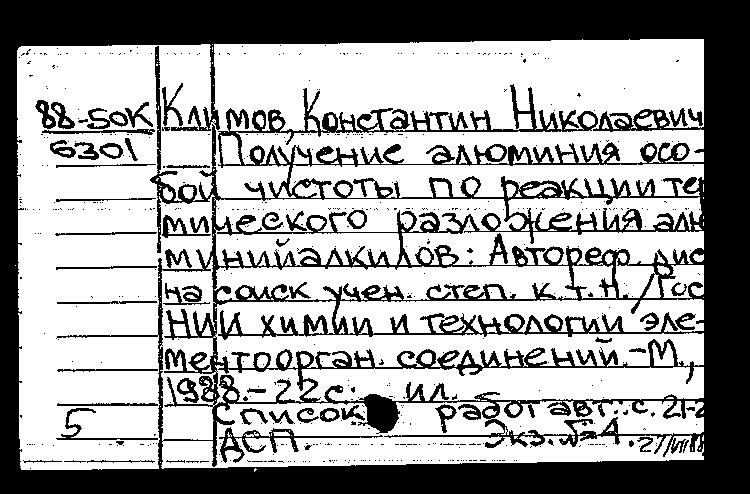 88-50К Климов, Константин Николаевич
6301 Получение алюминия осо-
бой чистоты по реакции тер
мического разложения алю
минийалкилов: Автореф. дис
на соиск учен. степ. к.т.н. /Гос
НИИ химии и технологии эле-
ментоорган. соединений.-М.,
1988.-22с. ил.
Список работ авт.: с. 21-2
5 ДСП. Экз. №4. 27/VII88